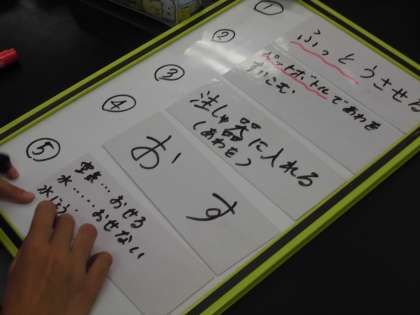 ①
ふっとうさせる
②
ペットボトルであわを
すいこむ
③
注しゃ器に入れる
(あわを)
④
おす
⑤
空気…おせる
水……おせない
水じょう…おせない